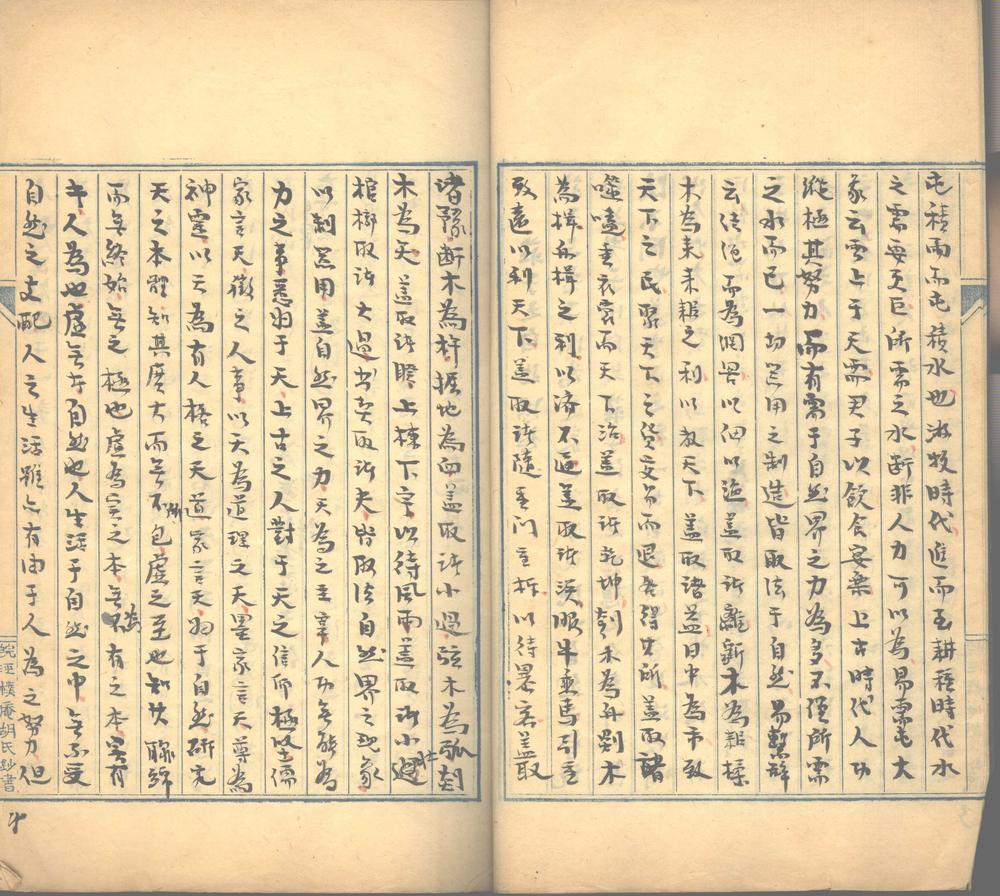 屯積雨而屯積水也游牧時代進而至耕種時代水
之需要至巨所需之水斷非人力可以為易需屯大
象云雲上于天需君子以飲食宴樂上古時代人功
縱極其努力而有需于自然界之力為多不僅所需
之水而已一切器用之制造皆取法于自然易繫辭
云結繩而為網罟以佃以漁蓋取諸離斲木為耜揉
木為耒耒耜之利以教天下蓋取諸益日中為市致
天下之民聚天下之貨交易而退各得其所蓋取諸
噬嗑垂衣裳而天下治蓋取諸乾坤刳木為舟剡木
為楫舟楫之利以濟不通蓋取諸渙服牛乘馬引重
致遠以利天下蓋取諸隨重門擊柝以待暴客蓋取
諸豫斷木為杵掘地為臼蓋取諸小過弦木為弧剡
木為矢蓋取諸睽上棟下宇以待風雨蓋取諸大壯
棺槨取諸大過書契取諸夬皆取法自然界之現象
以制器用蓋自然界之力天為之主宰人功無能為
力之事悉歸于天上古之人對于天之信仰極堅儒
家言天徵之人事以天為道理之天墨家言天尊為
神靈以天為有人格之天道家言天歸于自然研究
天之本體知其廣大而無所不包虛之至也知其聯綿
而無終始無之極也虛為實之本無為有之本實有
人為也虛無本自然也人生活于自然之中無不受
自然之支配人之生活雖亦有由于人為之努力但
皖涇樸庵胡氏鈔書